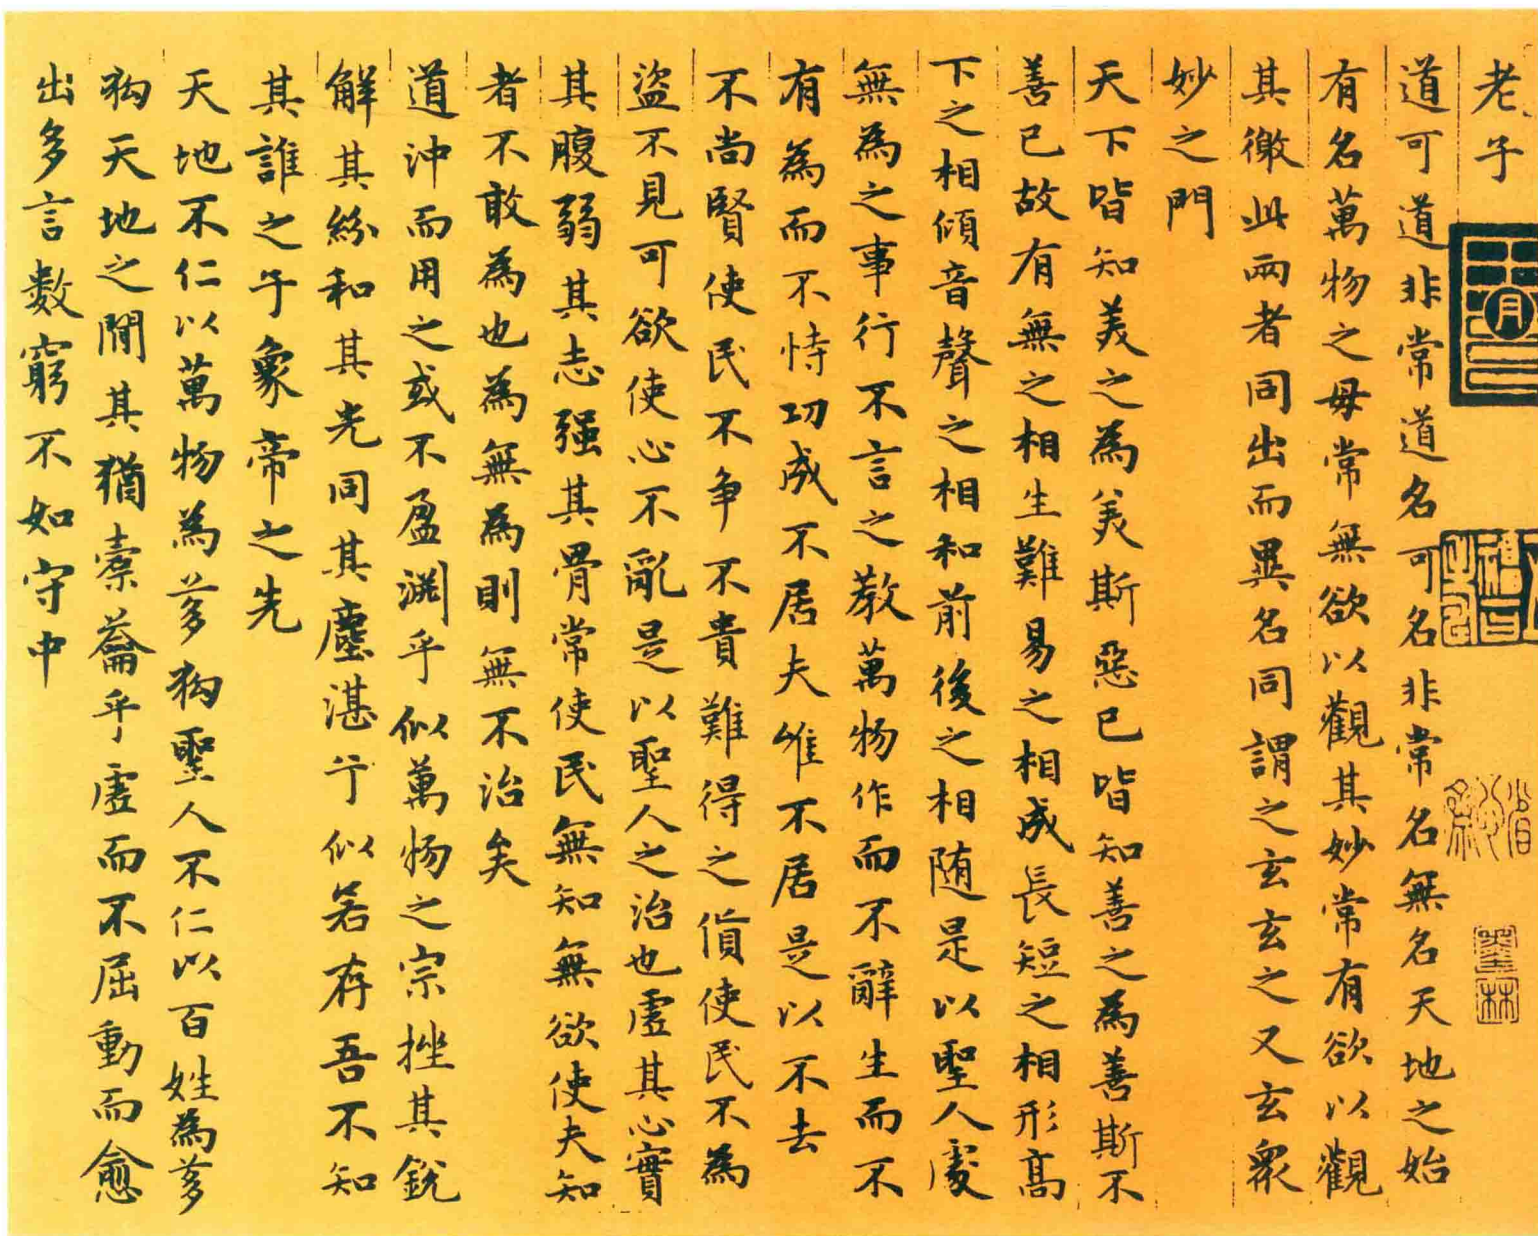 老子
道可道非常道名可名非常名無名天地之始
有名萬物之母常無欲以觀其妙常有欲以觀
其徼此兩者同出而異名同謂之玄玄之又玄衆
妙之門
天下皆知美之為美斯惡已皆知善之為善斯不
善已故有無之相生難易之相成長短之相形高
下之相傾音聲之相和前後之相随是以聖人處
無為之事行不言之教萬物作而不辭生而不
有為而不恃功成不居夫惟不居是以不去
不尚賢使民不争不貴難得之貨使民不為
盜不見可欲使心不亂是以聖人之治也虛其心實
其腹弱其志强其骨常使民無知無欲使夫知
者不敢為也為無為則無不治矣
道沖而用之或不盈淵乎似萬物之宗挫其銳
解其紛和其光同其塵湛兮似若存吾不知
其誰之子象帝之先
天地不仁以萬物為芻狗聖人不仁以百姓為芻
狗天地之間其猶橐籥乎虛而不屈動而愈
出多言數窮不如守中